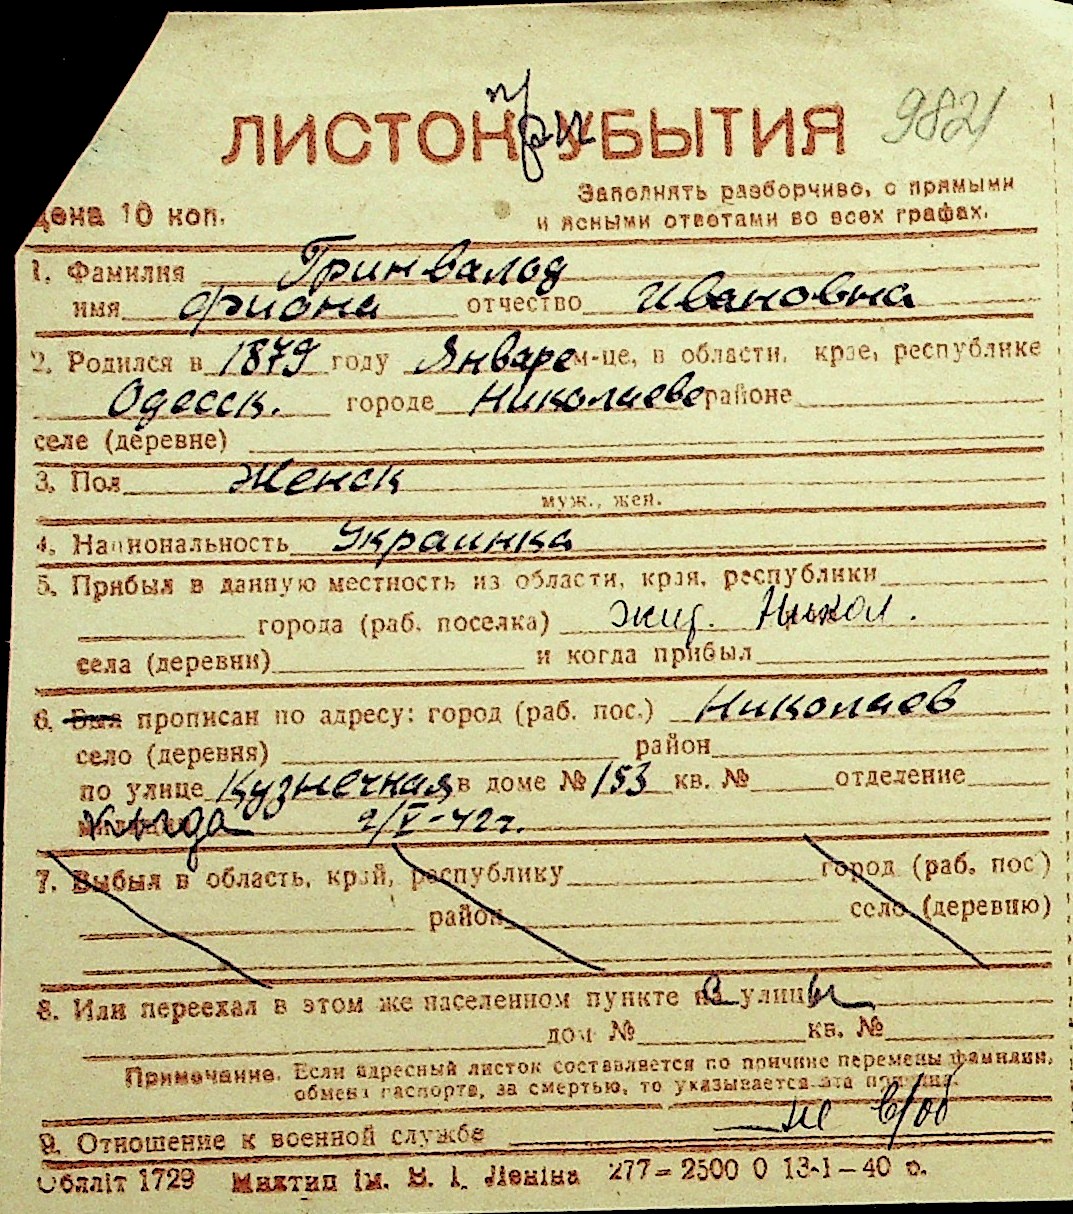 ЛИСТОК УБЫТИЯ
при
9821
Цена 10 коп.
Заполнять разборчиво, с прямыми
и ясными ответами во всех графах.
1. Фамилия Гринвальд
имя Фиона отчество Ивановна
2. Родился в 1879 году Январе м-це, в области, крае, республике
Одесск. городе Николаеве районе
селе (деревне)
3. Пол Женск
муж., жен.
4. Национальность Украинка
5. Прибыл в данную местность из области, края, республики
города (раб. поселка) жит. Никол.
села (деревни) и когда прибыл
6. Был прописан по адресу: город (раб. пос.) Николаев
село (деревня) район
по улице Кузнечная в доме № 153 кв. № отделение
когда 2/V-42г.
7. Выбыл в область, край, республику город (раб. пос)
район село (деревню)
8. Или переехал в этом же населенном пункте с улицы
дом № кв. №
Примечание. Если адресный листок составляется по причине перемены фамилии,
обмена паспорта, за смертью, то указывается эта причина.
9. Отношение к военной службе не в/об
Обяліт 1729 Миктип ім. В. І. Леніна 277-2500 0 13-1-40 р.